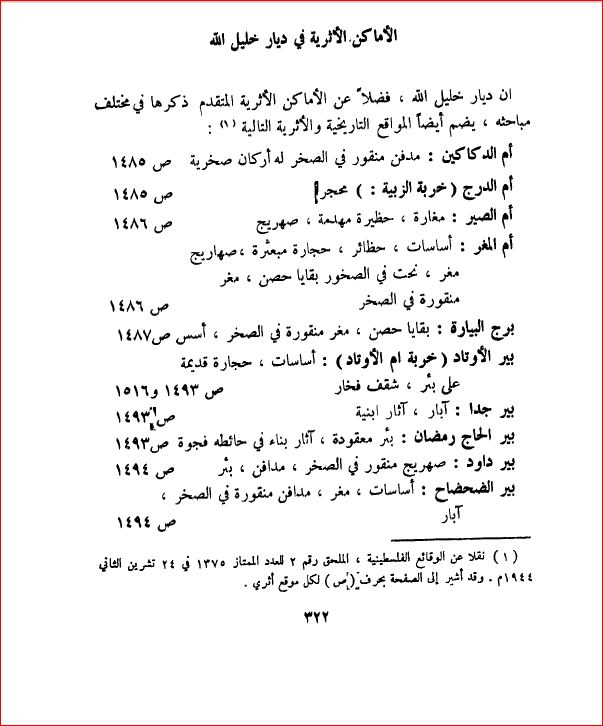 الأماكن الأثرية في ديار خليل الله
ان ديار خليل الله ، فضلاً عن الأماكن الأثرية المتقدم ذكرها في مختلف
مباحثه ، يضم أيضاً المواقع التاريخية والأثرية التالية (١) :
أم الدكاكين : مدفن منقور في الصخر له أركان صخرية ص ١٤٨٥
أم الدرج ( خربة الزبية : ) محجر ص ١٤٨٥
أم الصير : مغارة ، حظيرة مهدمة ، صهريج ص ١٤٨٦
أم المغر : أساسات ، حظائر ، حجارة مبعثرة ، صهاريج
مغر ، نحت في الصخور بقايا حصن ، مغر
منقورة في الصخر ص ١٤٨٦
برج البيارة : بقايا حصن ، مغر منقورة في الصخر ، أسس ص ١٤٨٧
بير الأوتاد ( خربة ام الأوتاد ) : أساسات ، حجارة قديمة
على بئر ، شقف فخار ص ١٤٩٣ و١٥١٦
بير جدا : آبار ، آثار ابنية ص ١٤٩٣
بير الحاج رمضان : بئر معقودة ، آثار بناء في حائطه فجوة ص ١٤٩٣
بير داود : صهريج منقور في الصخر ، مدافن ، بئر ص ١٤٩٤
بير الضحضاح : أساسات ، مغر ، مدافن منقورة في الصخر ،
آبار ص ١٤٩٤
( ١ ) نقلا عن الوقائع الفلسطينية ، الملحق رقم ٢ للعدد الممتاز ١٣٧٥ في ٢٤ تشرين الثاني
١٩٤٤م . وقد أشير إلى الصفحة بحرف ( ص ) لكل موقع أثري .
٣٢٢